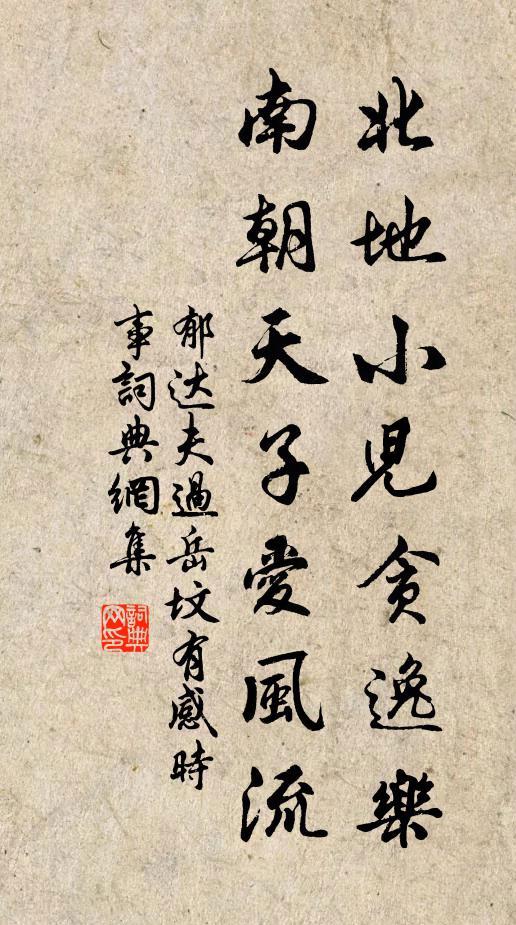 北地小児貪逸樂
南朝天子愛風流
郁达夫過岳坟有感時
事詞典網集
詞典网印